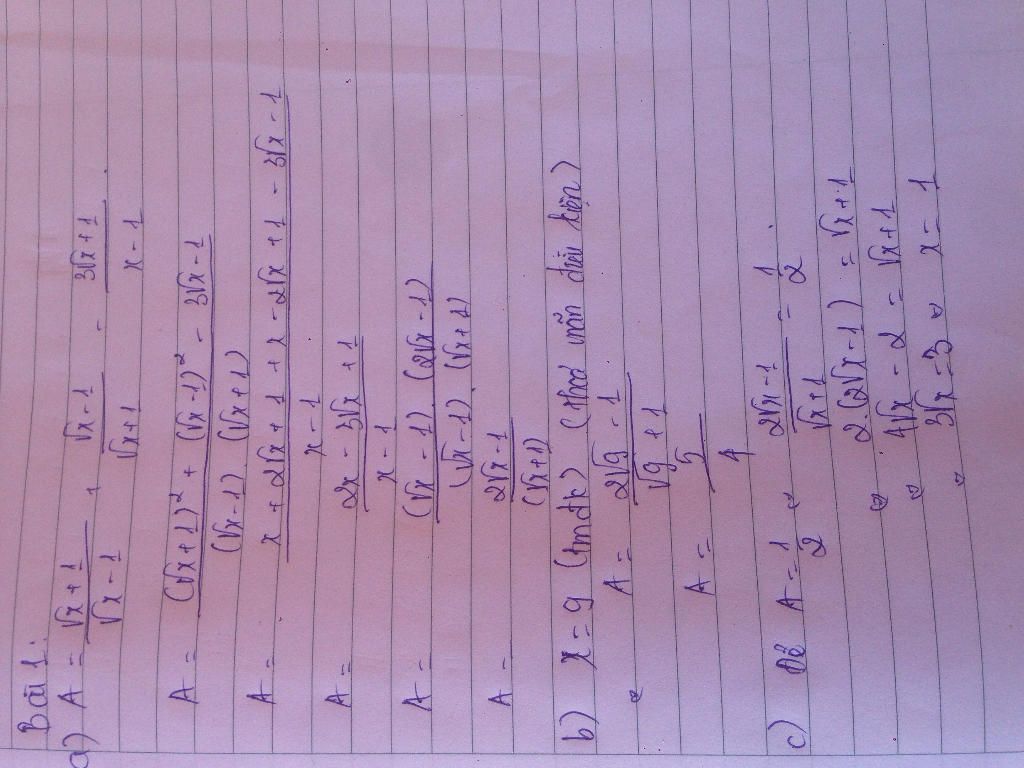 Bài 1:
a) A = (√x+1)/(√x-1) + (√x-1)/(√x+1) - (3√x+1)/(x-1).
A = ((√x+1)² + (√x-1)² - 3√x-1)/((√x-1).(√x+1))
A = (x+2√x+1+x-2√x+1-3√x-1)/(x-1)
A = (2x-3√x+1)/(x-1)
A = ((√x-1).(2√x-1))/((√x-1).(√x+1))
A = (2√x-1)/(√x+1)
b) x=9 (tmđk) (thoả mãn điều kiện)
A = (2√9-1)/(√9+1)
A = 5/4
c) Để A = 1/2 ⇔ (2√x-1)/(√x+1) = 1/2.
⇔ 2.(2√x-1) = √x+1
⇔ 4√x-2 = √x+1
⇔ 3√x=3 ⇔ x=1